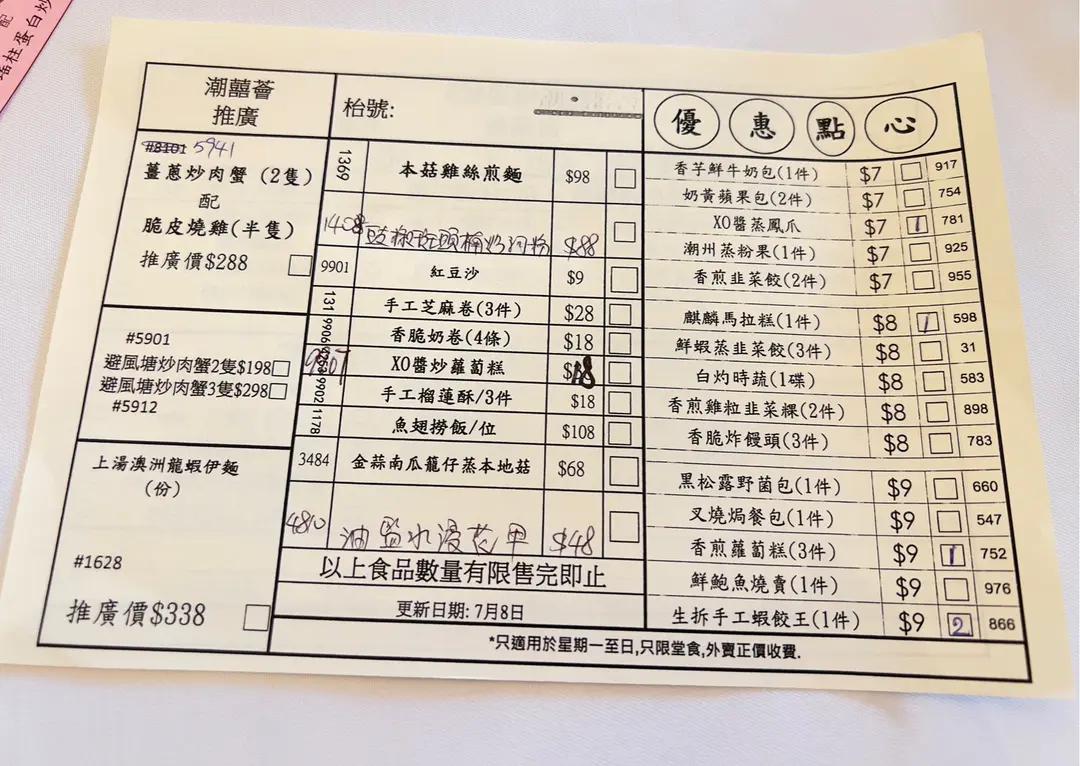 配
瑤柱蛋白炒
潮囍薈
推廣
#8101 5941
薑蔥炒肉蟹 (2隻)
配
脆皮燒雞(半隻)
推廣價$288
#5901
避風塘炒肉蟹2隻$198
避風塘炒肉蟹3隻$298
#5912
上湯澳洲龍蝦伊麵
(份)
#1628
推廣價$338
枱號:
1369 本菇雞絲煎麵 $98
1408 $88
9901 紅豆沙 $9
131 手工芝麻卷(3件) $28
9906 香脆奶卷(4條) $18
XO醬炒蘿蔔糕 $18
9902 手工榴蓮酥/3件 $18
1178 魚翅撈飯/位 $108
3484 金蒜南瓜籠仔蒸本地菇 $68
4810 油鹽水浸花甲 $48
以上食品數量有限售完即止
更新日期: 7月8日
優惠點心
香芋鮮牛奶包(1件) $7 917
奶黃蘋果包(2件) $7 754
XO醬蒸鳳爪 $7 1 781
潮州蒸粉果(1件) $7 925
香煎韭菜餃(2件) $7 955
麒麟馬拉糕(1件) $8 1 598
鮮蝦蒸韭菜餃(3件) $8 31
白灼時蔬(1碟) $8 583
香煎雞粒韭菜粿(2件) $8 898
香脆炸饅頭(3件) $8 783
黑松露野菌包(1件) $9 660
叉燒焗餐包(1件) $9 547
香煎蘿蔔糕(3件) $9 1 752
鮮鮑魚燒賣(1件) $9 976
生拆手工蝦餃王(1件) $9 2 866
*只適用於星期一至日,只限堂食,外賣正價收費.